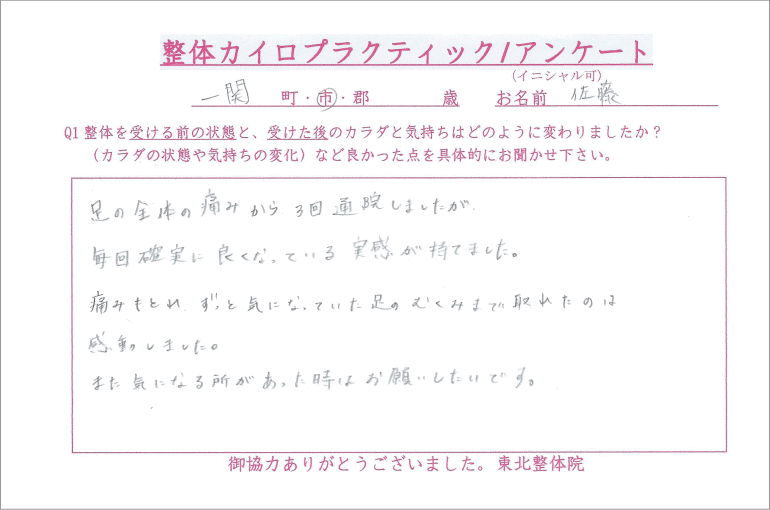 整体カイロプラクティック/アンケート
(イニシャル可)
一関 町・市・郡 歳 お名前 佐藤
Q1 整体を受ける前の状態と、受けた後のカラダと気持ちはどのように変わりましたか?
(カラダの状態や気持ちの変化)など良かった点を具体的にお聞かせ下さい。
足の全体の痛みから3回通院しましたが、
毎回確実に良くなっている実感が持てました。
痛みもとれ、ずっと気になっていた足のむくみまで取れたのは
感動しました。
また気になる所があった時はお願いしたいです。
御協力ありがとうございました。東北整体院